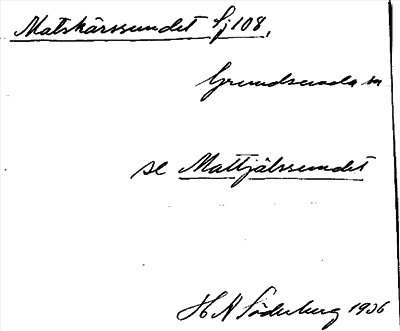 Matskärssundet Sj 108,
Grundsunda sn
se Mattjälssundet
H N Söderberg 1936